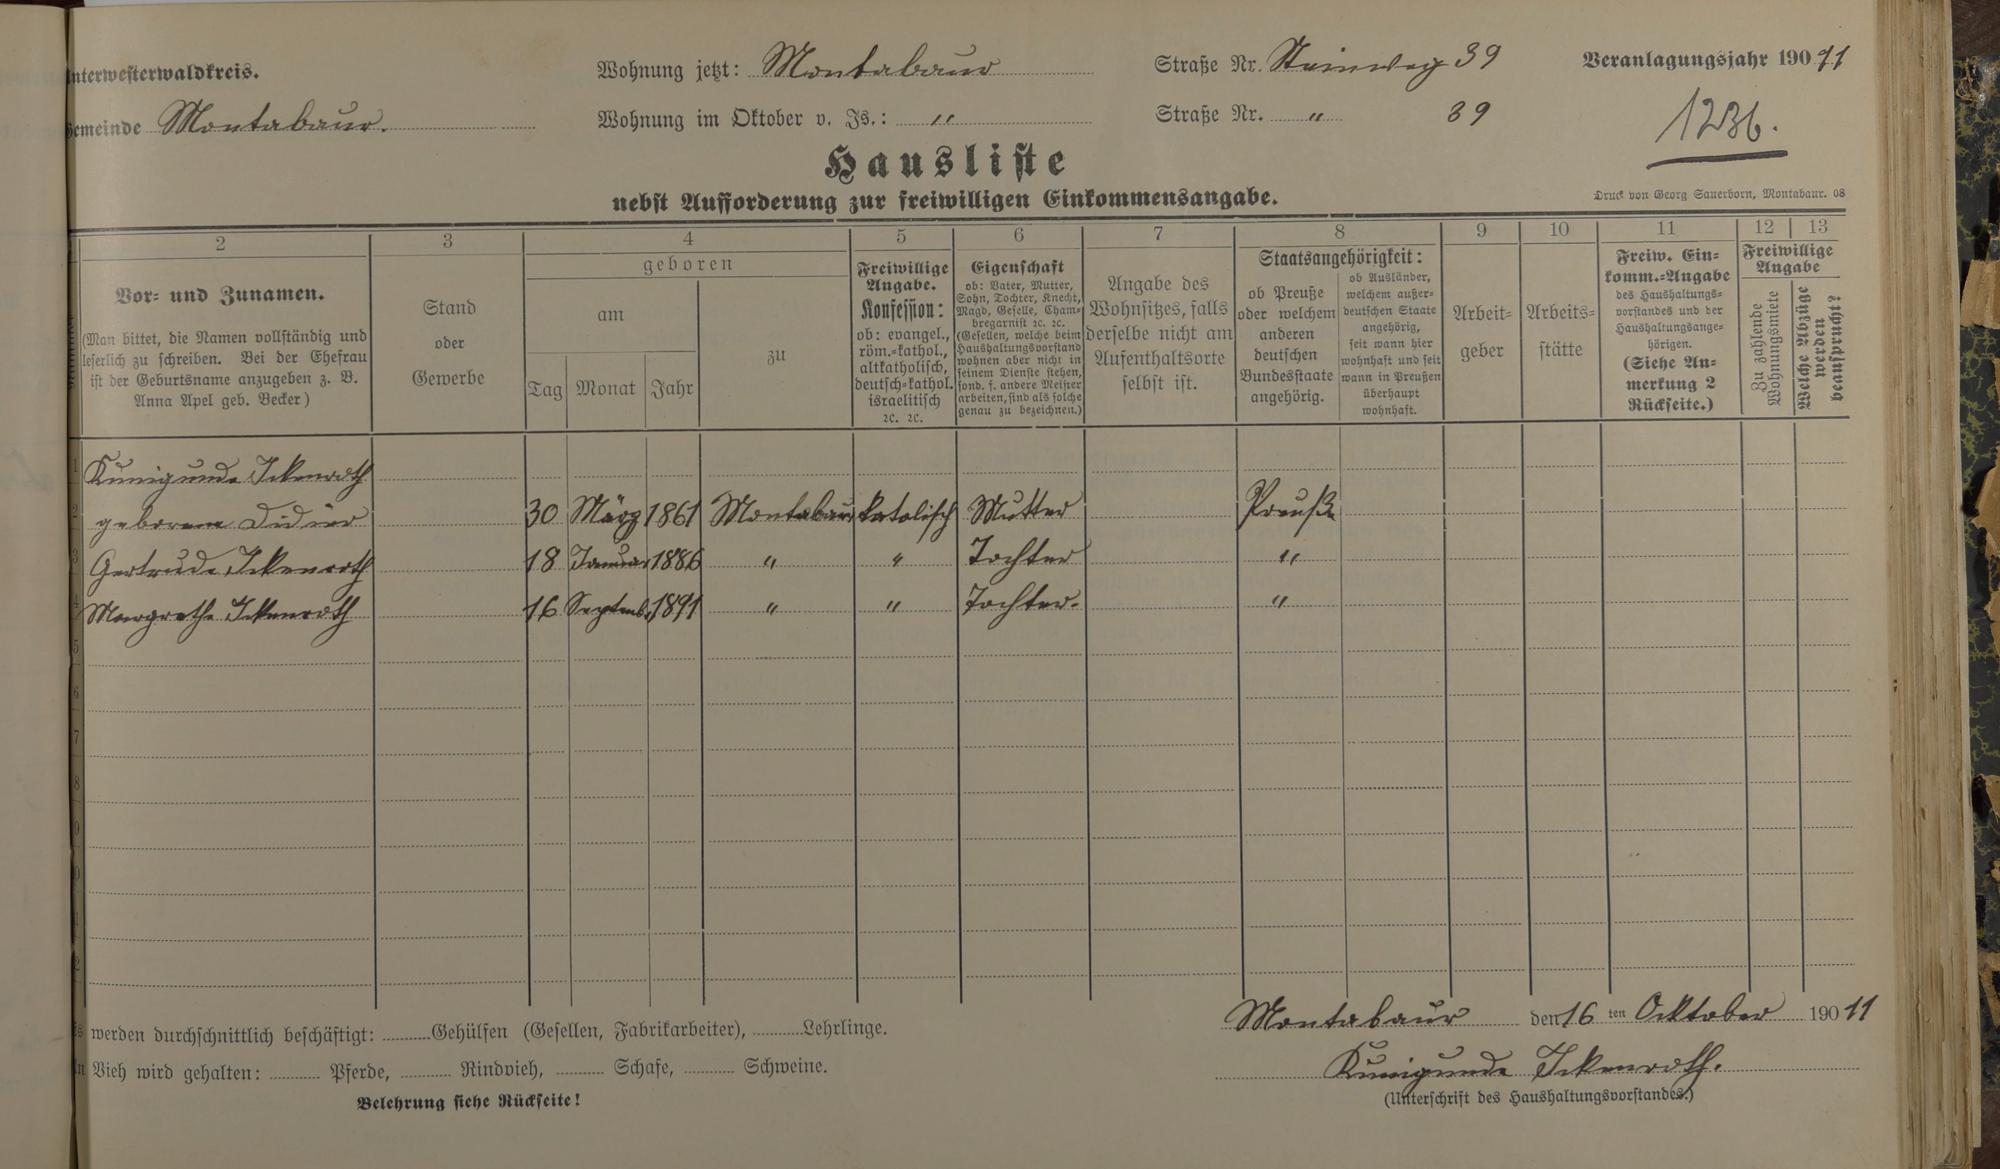 nterwesterwaldkreis.
Wohnung jetzt: Montabaur
Straße Nr. Steinweg 39
Veranlagungsjahr 190 11
Gemeinde Montabaur.
Wohnung im Oktober v. Js.: "
Straße Nr. " 39
1236.
Hausliste
nebst Aufforderung zur freiwilligen Einkommensangabe.
Druck von Georg Sauerborn, Montabaur. 08
2 3 4 5 6 7 8 9 10 11 12 13
Vor- und Zunamen.
(Man bittet, die Namen vollständig und
leserlich zu schreiben. Bei der Ehefrau
ist der Geburtsname anzugeben z. B.
Anna Apel geb. Becker)
Stand
oder
Gewerbe
geboren
am
Tag Monat Jahr
zu
Freiwillige
Angabe.
Konfession:
ob: evangel.,
röm.-kathol.,
altkatholisch,
deutsch-kathol.
israelitisch
2c. 2c.
Eigenschaft
ob: Vater, Mutter,
Sohn, Tochter, Knecht,
Magd, Geselle, Cham-
bregarnist 2c. 2c.
(Gesellen, welche beim
Haushaltungsvorstand
wohnen aber nicht in
seinem Dienste stehen,
sond. f. andere Meister
arbeiten, sind als solche
genau zu bezeichnen.)
Angabe des
Wohnsitzes, falls
derselbe nicht am
Aufenthaltsorte
selbst ist.
Staatsangehörigkeit:
ob Preuße
oder welchem
anderen
deutschen
Bundesstaate
angehörig.
ob Ausländer,
welchem außer-
deutschen Staate
angehörig,
seit wann hier
wohnhaft und seit
wann in Preußen
überhaupt
wohnhaft.
Arbeit-
geber
Arbeits-
stätte
Freiw. Ein-
komm.-Angabe
des Haushaltungs-
vorstandes und der
Haushaltungsange-
hörigen.
(Siehe An-
merkung 2
Rückseite.)
Freiwillige
Angabe
Zu zahlende
Wohnungsmiete
Welche Abzüge
werden
beansprucht?
1 Kunigunde Ickenroth
2 geborene Didier 30 März 1861 Montabaur katolisch Mutter Preuße
3 Gertrude Ickenroth 18 Januar 1886 " " Tochter "
4 Margrethe Ickenroth 16 Septemb. 1891 " " Tochter. "
5
6
7
8
9
0
1
2
Montabaur den 16 ten Oktober 190 11
Es werden durchschnittlich beschäftigt: Gehülfen (Gesellen, Fabrikarbeiter), Lehrlinge.
An Vieh wird gehalten: Pferde, Rindvieh, Schafe, Schweine.
Kunigunde Ickenroth.
(Unterschrift des Haushaltungsvorstandes.)
Belehrung siehe Rückseite!